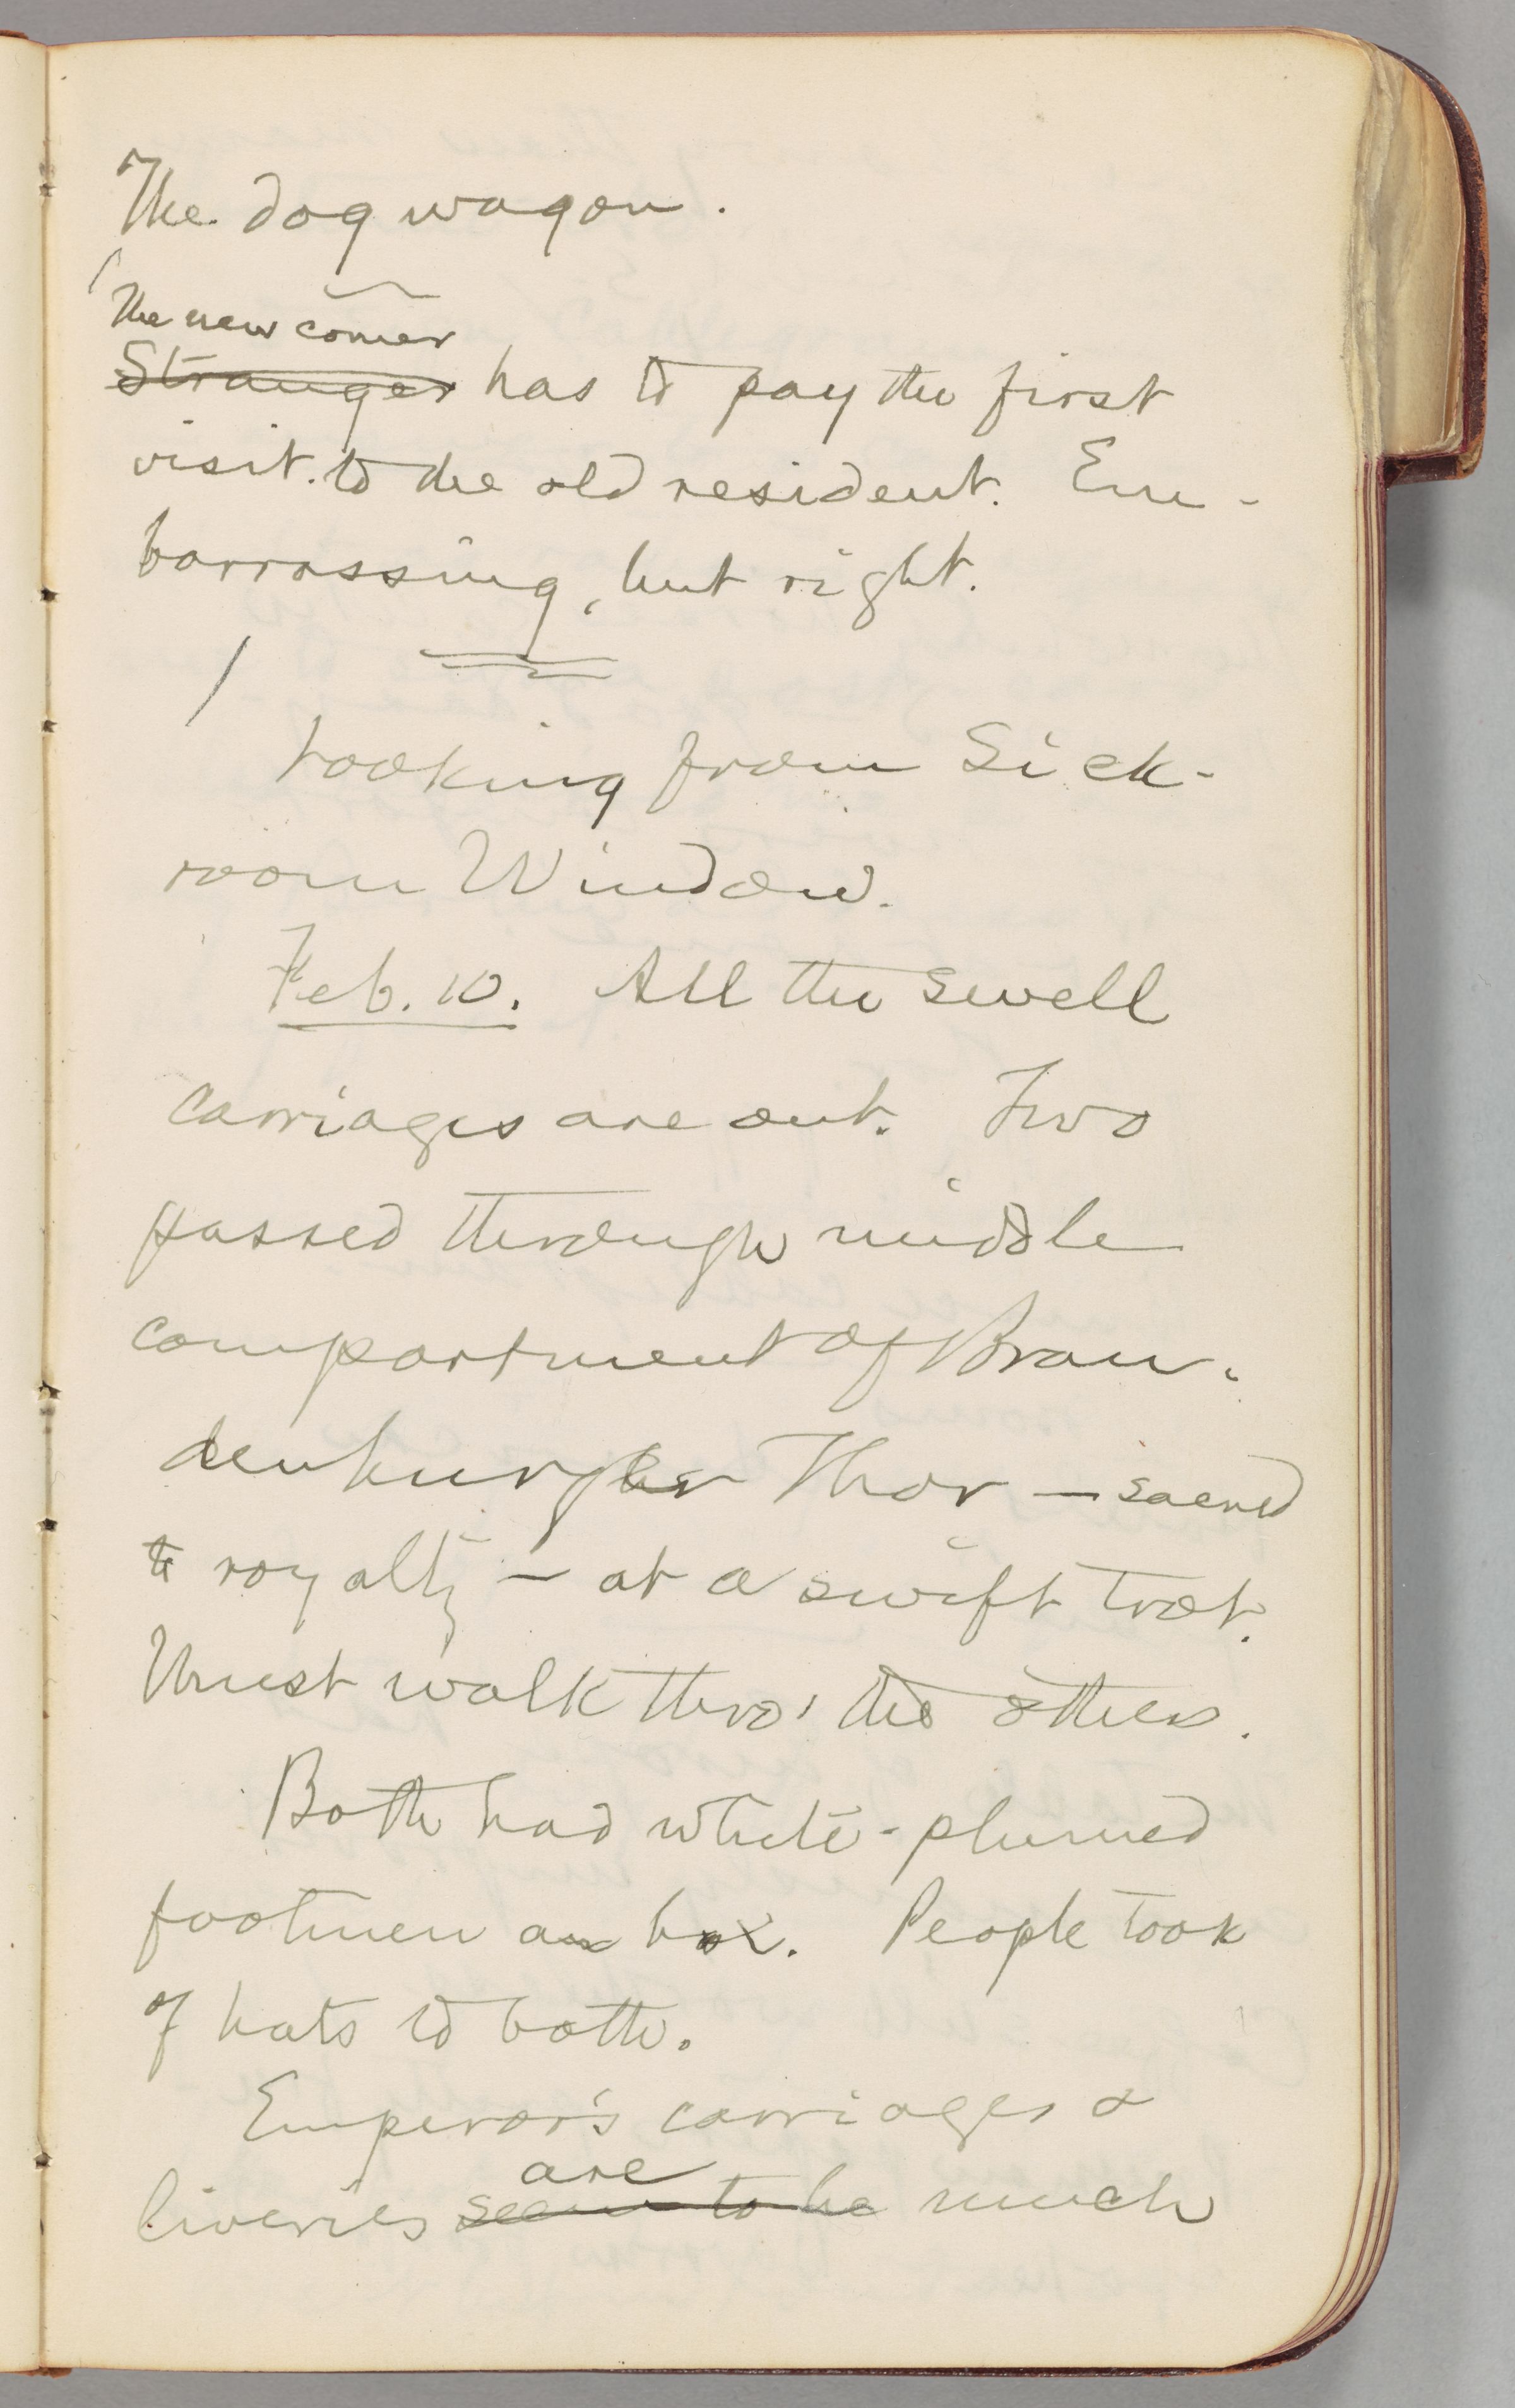 The dog wagon.
The new comer
Stranger has to pay the first
visit to the old resident. Em-
barrassing, but right.
Looking from Sick-
room Window.
Feb. 10. All the swell
carriages are out. Two
passed through middle
compartment of Bran-
denburgher Thor — sacred
to royalty — at a swift trot.
Must walk thro' the others.
Both had white-plumed
footmen on box. People took
of hats to both.
Emperor's carriages &
are
liveries seem to be much